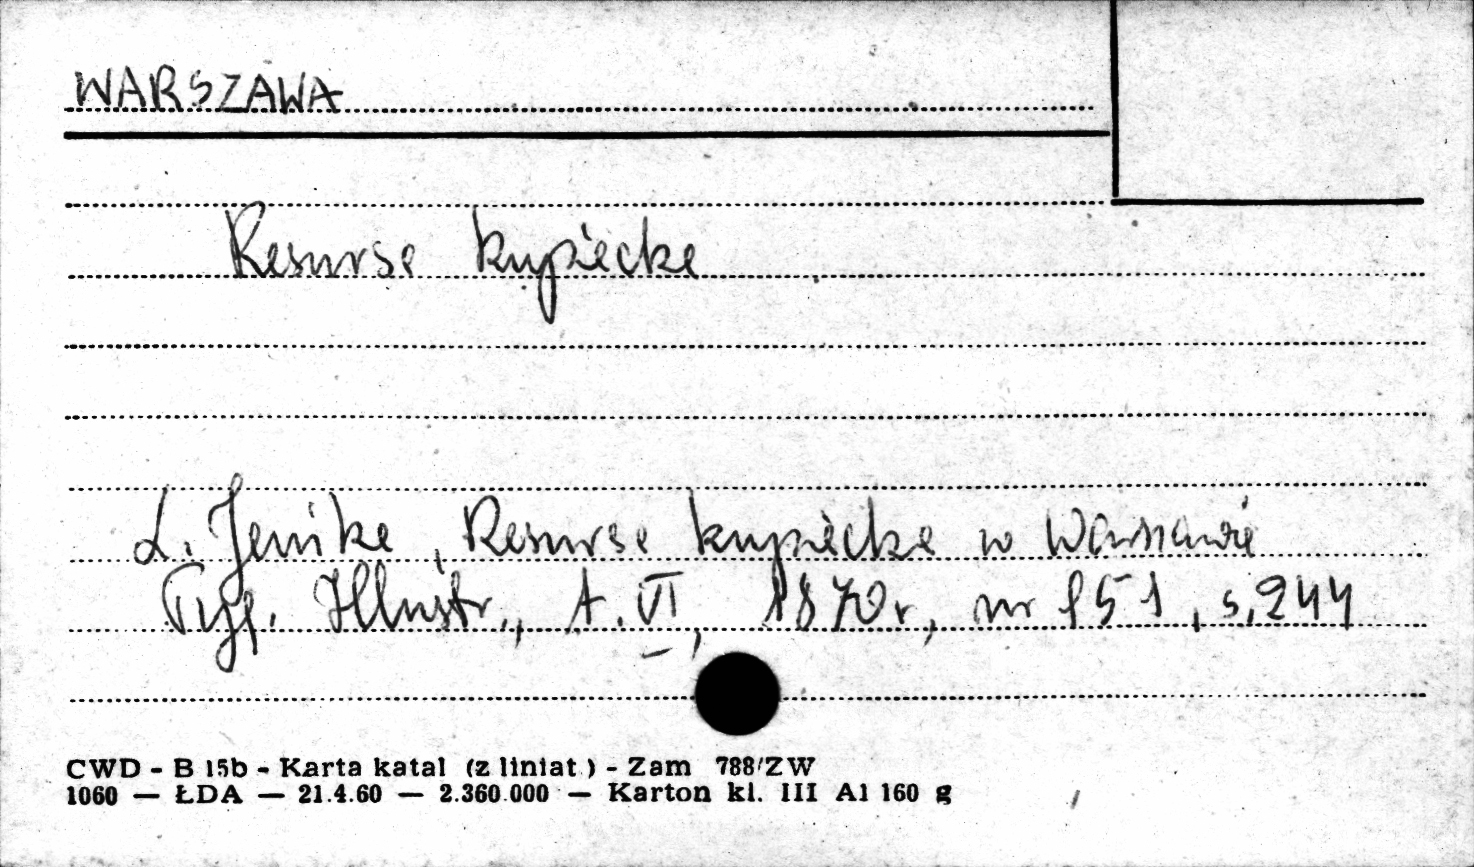 WARSZAWA
Resursa kupiecka
L. Jenike, Resursa kupiecka w Warszawie
Tyg. Illustr., t. VI, 1870 r, nr 151, s. 244
CWD - B 15b - Karta katal (z liniat) - Zam 788/ZW
1060 — ŁDA — 21.4.60 — 2.360.000 — Karton kl. III A1 160 g